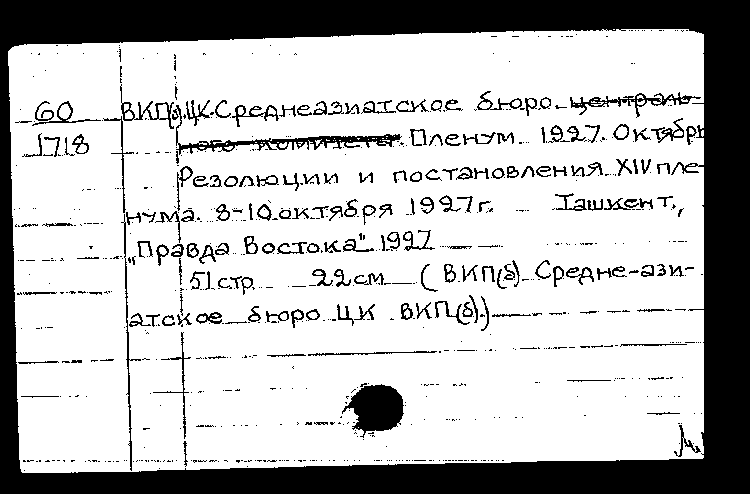 60 ВКП(б).ЦК.Среднеазиатское бюро. централь-
1718 ного комитета. Пленум. 1927. Октябрь
Резолюции и постановления XIV пле-
нума. 8-10 октября 1927 г. – Ташкент.,
„Правда Востока" 1927
51 стр 22 см (ВКП(б) Средне-ази-
атское бюро ЦК ВКП(б).)